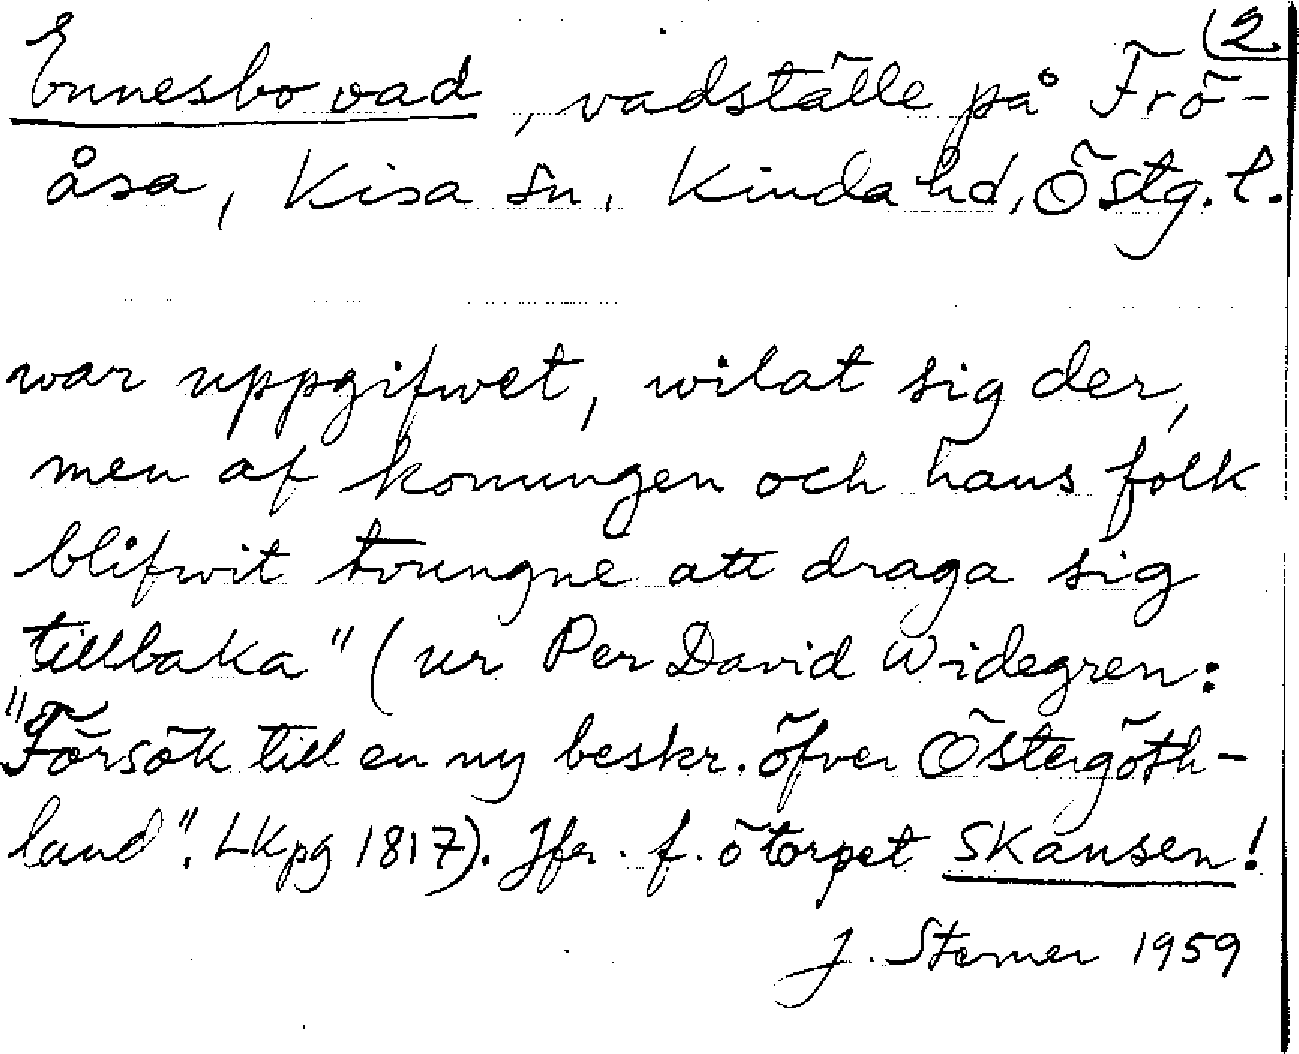 (2
Ennesbo vad, vadställe på Frö-
åsa, Kisa sn. Kinda hd, Östg. l.
war uppgifwet, wilat sig der,
men af konungen och hans folk
blifwit tvungne att draga sig
tillbaka" (ur Per David Widegren:
"Försök till en ny beskr. öfver Östergöth-
land". Lkpg 1817). Jfr. f. ö torpet Skansen!
J. Sterner 1959